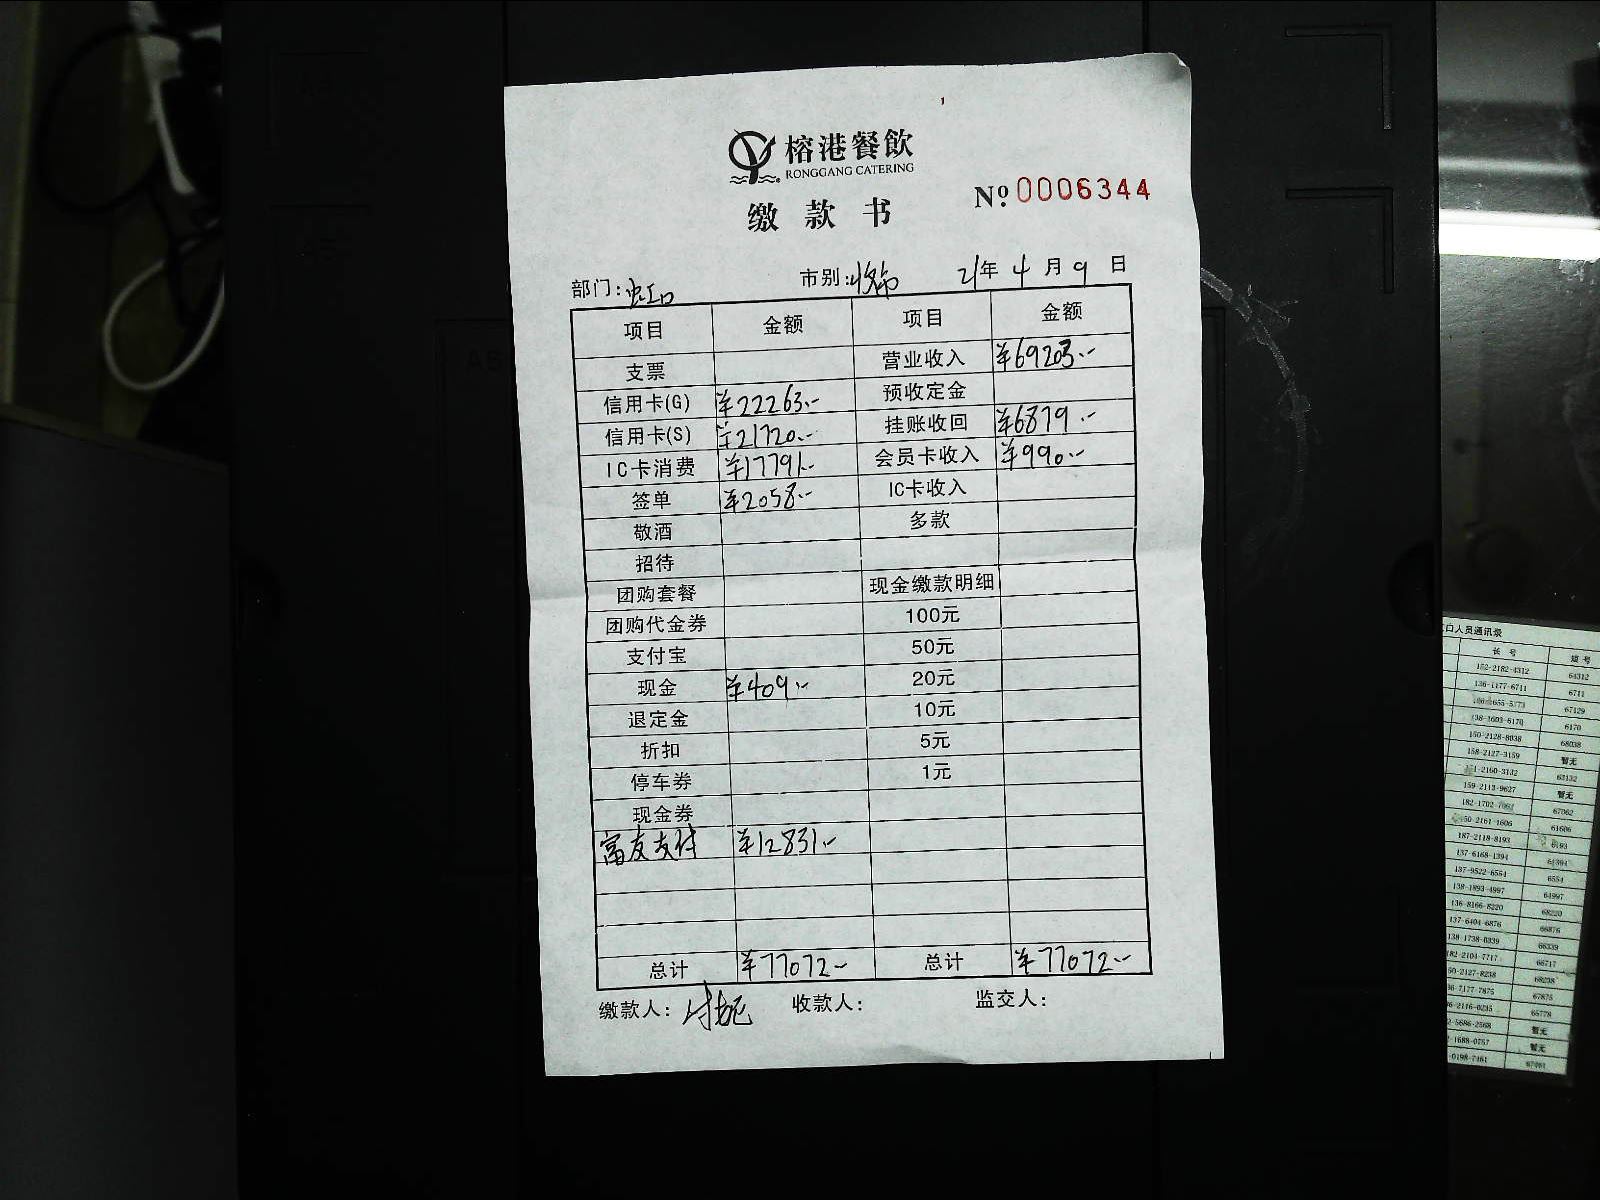 榕港餐飲
RONGGANG CATERING
缴款书
№ 0006344
部门:虹口 市别: 21年4月9日
项目 金额 项目 金额
支票 营业收入 ¥69203.-
信用卡(G) ¥22263.- 预收定金
信用卡(S) ¥21720.- 挂账收回 ¥6879.-
IC卡消费 ¥17791.- 会员卡收入 ¥990.-
签单 ¥2058.- IC卡收入
敬酒 多款
招待
团购套餐 现金缴款明细
团购代金券 100元
支付宝 50元
现金 ¥409.- 20元
退定金 10元
折扣 5元
停车券 1元
现金券
富友支付 ¥12831.-
总计 ¥77072.- 总计 ¥77072.-
缴款人: 收款人: 监交人:
口人员通讯录
长号 短号
152-2182-4312 64312
136-1177-6711 6711
67129
138-1603-6170 6170
150-2128-8038 68038
158-2127-3159 暂无
63132
159-2113-9627 暂无
67062
150-2161-1606 61606
187-2118-8193 6193
137-6168-1394 61394
137-9522-6554 6554
138-1893-4997 64997
136-8166-8220 68220
137-6404-6876 66876
138-1738-8339 66339
182-2104-7717 66717
50-2127-8238 68238
36-7177-7875 67875
暂无
暂无